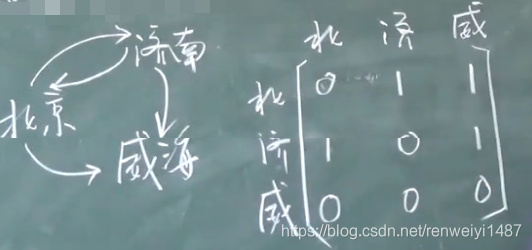 济南
北京
威海
北 济 威
北 0 1 1
济 1 0 1
威 0 0 0
https://blog.csdn.net/renweiyi1487